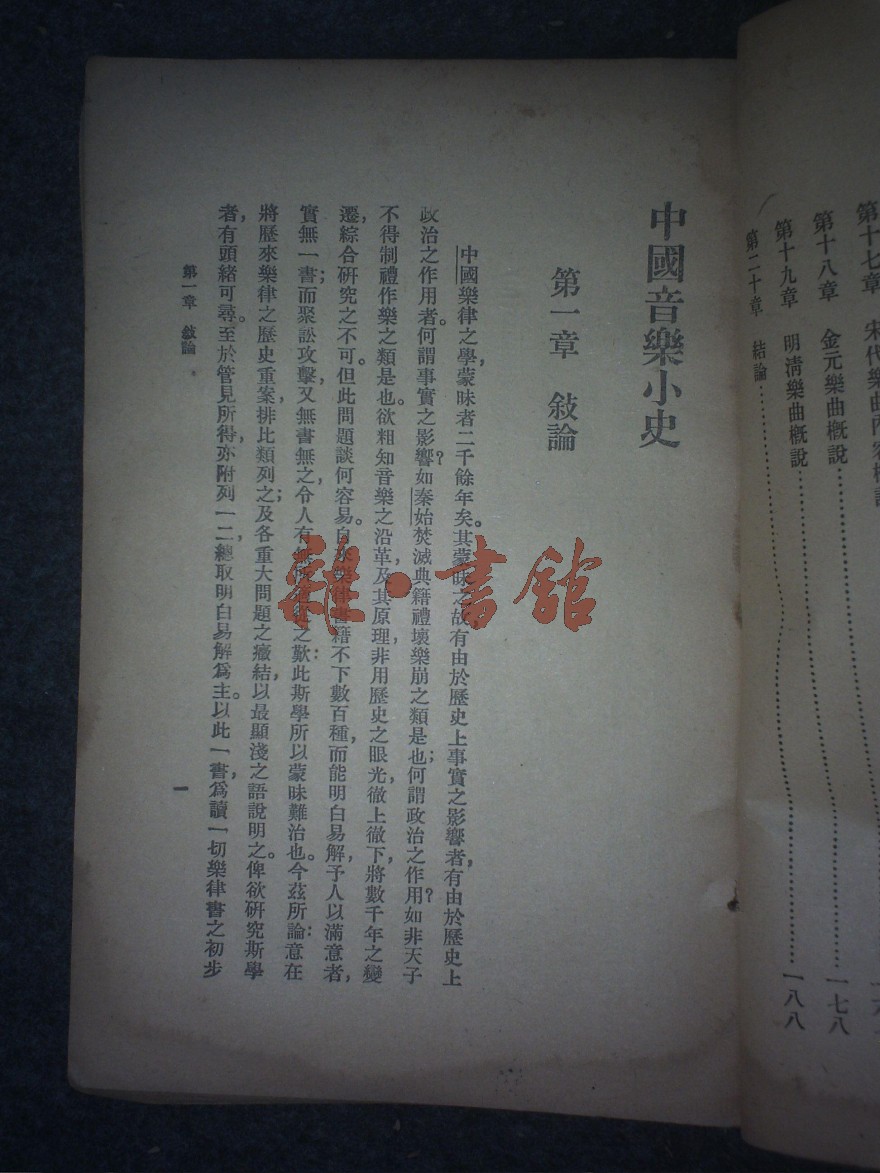 第十七章　宋代樂曲內容概說
第十八章　金元樂曲概說……一七八
第十九章　明清樂曲概說……一八八
第二十章　結論……
中國音樂小史
第一章　敍論
中國樂律之學，蒙昧者二千餘年矣。其蒙昧之故有由於歷史上事實之影響者，有由於歷史上
政治之作用者。何謂事實之影響？如秦始焚滅典籍禮壞樂崩之類是也；何謂政治之作用？如非天子
不得制禮作樂之類是也。欲粗知音樂之沿革及其原理，非用歷史之眼光，徹上徹下，將數千年之變
遷，綜合研究之不可。但此問題談何容易。自來樂律書籍不下數百種，而能明白易解，予人以滿意者，
實無一書；而聚訟攻擊，又無書無之，令人有之歎：此斯學所以蒙昧難治也。今茲所論：意在
將歷來樂律之歷史重案，排比類列之；及各重大問題之癥結，以最顯淺之語說明之。俾欲研究斯學
者，有頭緒可尋。至於管見所得，亦附列一二，總取明白易解爲主。以此一書，爲讀一切樂律書之初步
第一章　敍論
一
雜·書館